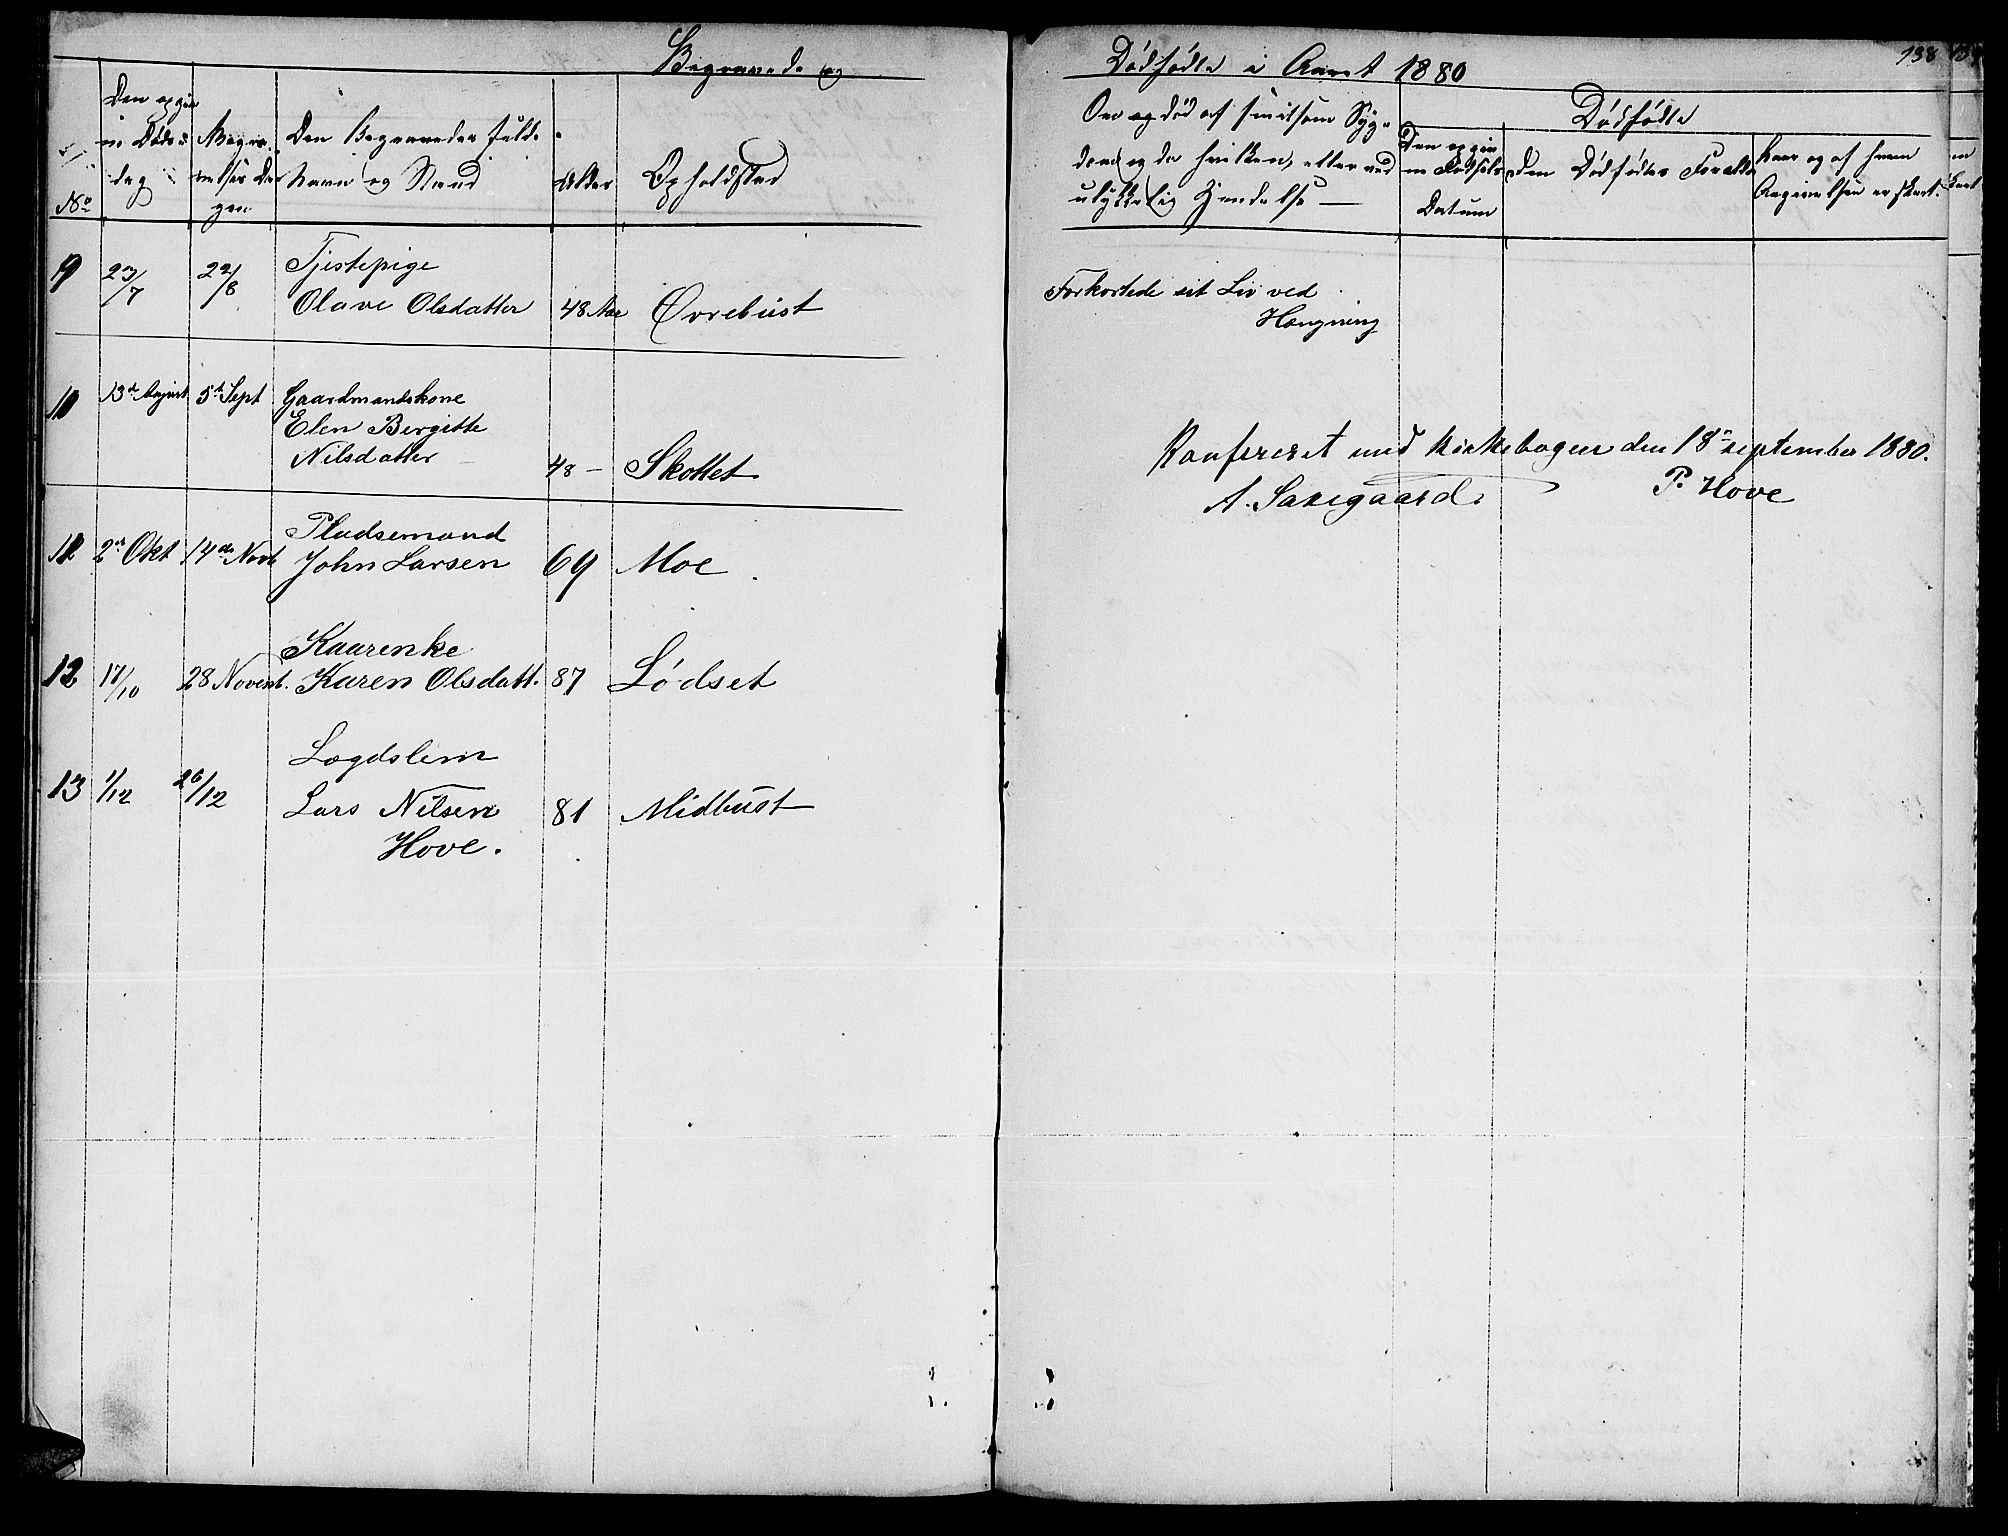 Begravede og
Dødfødte i Aaret 1880
138
No
Den opgivne Dødsdag
Begravelses Dagen
Den Begravedes fulde Navn og Stand
Alder
Opholdsted
Om død af smitsom Sygdom og da hvilken, eller ved ulykkelig Hændelse
Dødfødte
Den opgivne Fødsels Datum
Den Dødfødtes Forældre
Naar og af hvem Angivelsen er skeet.
9 23/7 22/8 Tjestepige
Olave Olsdatter 48 Aar Øvrebust
Forkortede sit Liv ved
Hængning
10 13de August 5te Sept Gaardmandskone
Elen Bergitte
Nilsdatter 48 – Skottet
Konfereret med Kirkebogen den 18de september 1880.
P. Hove
11 2den Okt 14de Novb Pladsemand
John Larsen 69 Moe
12 17/10 28 Novemb. Kaarenke
Karen Olsdatt. 87 Lødset
13 1/12 26/12 Lægdslem
Lars Nilsen 81 Midbust
Hove.